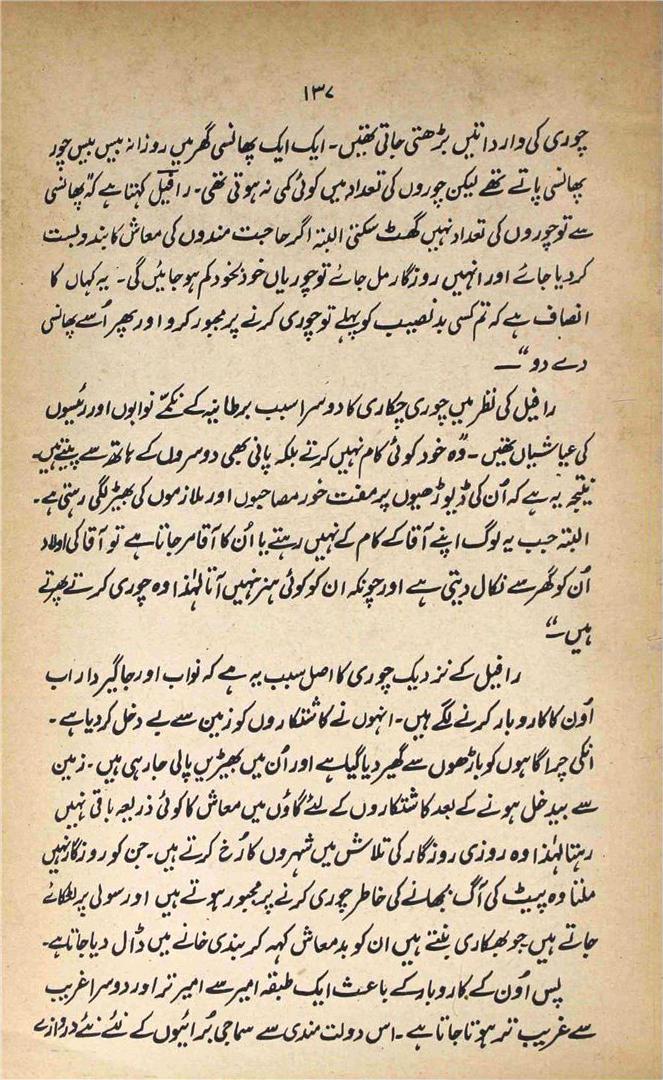 ۱۳۷
چوری کی وارداتیں بڑھتی جاتی تھیں۔ ایک ایک پھانسی گھر میں روزانہ بیس بیس چور
پھانسی پاتے تھے لیکن چوروں کی تعداد میں کوئی کمی نہ ہوتی تھی۔ رافیل کہتا ہے کہ "پھانسی
سے تو چوروں کی تعداد نہیں گھٹ سکتی البتہ اگر حاجت مندوں کی معاش کا بندوبست
کر دیا جائے اور انہیں روزگار مل جائے تو چوریاں خود بخود کم ہو جائیں گی۔ یہ کہاں کا
انصاف ہے کہ تم کسی بدنصیب کو پہلے تو چوری کرنے پر مجبور کرو اور پھر اُسے پھانسی
دے دو"۔
رافیل کی نظر میں چوری چکاری کا دوسرا سبب برطانیہ کے نکمّے نوابوں اور رئیسوں
کی عیاشیاں تھیں۔ "وہ خود کوئی کام نہیں کرتے بلکہ پانی بھی دوسروں کے ہاتھ سے پیتے ہیں۔
نتیجہ یہ ہے کہ اُن کی ڈیوڑھیوں پر مفت خور مصاحبوں اور ملازموں کی بھیڑ لگی رہتی ہے۔
البتہ جب یہ لوگ اپنے آقا کے کام کے نہیں رہتے یا اُن کا آقا مر جاتا ہے تو آقا کی اولاد
اُن کو گھر سے نکال دیتی ہے اور چونکہ ان کو کوئی ہنر نہیں آتا لہٰذا وہ چوری کرتے پھرتے
ہیں۔"
رافیل کے نزدیک چوری کا اصل سبب یہ ہے کہ نواب اور جاگیردار اب
اُون کا کاروبار کرنے لگے ہیں۔ انہوں نے کاشتکاروں کو زمین سے بے دخل کر دیا ہے۔
انکی چراگاہوں کو باڑھوں سے گھیر دیا گیا ہے اور اُن میں بھیڑیں پالی جا رہی ہیں۔ زمین
سے بیدخل ہونے کے بعد کاشتکاروں کے لئے گاؤں میں معاش کا کوئی ذریعہ باقی نہیں
رہتا لہٰذا وہ روزی روزگار کی تلاش میں شہروں کا رُخ کرتے ہیں۔ جن کو روزگار نہیں
ملتا وہ پیٹ کی آگ بجھانے کی خاطر چوری کرنے پر مجبور ہوتے ہیں اور سولی پر لٹکائے
جاتے ہیں۔ جو بھکاری بنتے ہیں ان کو بدمعاش کہہ کر بندی خانے میں ڈال دیا جاتا ہے۔
پس اُون کے کاروبار کے باعث ایک طبقہ امیر سے امیر تر اور دوسرا غریب
سے غریب تر ہوتا جاتا ہے۔ اس دولت مندی سے سماجی بُرائیوں کے نئے نئے دروازے